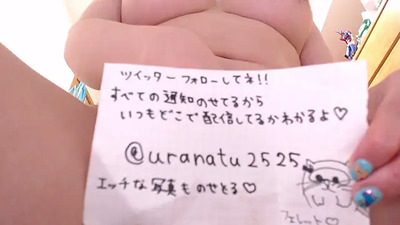 ツイッターフォローしてネ!!
すべての通知のせてるから
いつもどこで配信してるかわかるよ♡
@uranatu2525
エッチな写真ものせとる♡
フェレット♡